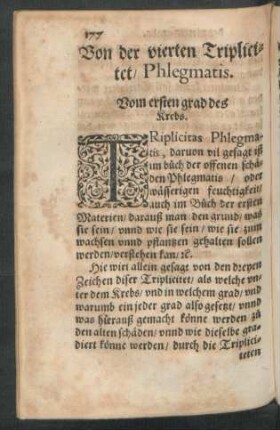 177
Von der vierten Triplici-
tet/ Phlegmatis.
Vom ersten grad des
Krebs.
TRiplicitas Phlegma-
tis, daruon vil gesagt ist
im bůch der offenen schä-
den Phlegmatis / oder
wässerigen feuchtigkeit/
auch im Bůch der ersten
Materien/ darauß man den grund/ was
sie sein / vnnd wie sie sein / wie sie zum
wachsen vnnd pflantzen gehalten sollen
werden/verstehen kan/ ꝛc.
Hie wirt allein gesagt von den dreyen
Zeichen diser Triplicitet/ als welche vn-
ter dem Krebs/ vnd in welchem grad/ vnd
warumb ein jeder grad also gesetzt/ vnnd
was hierauß gemacht könne werden zů
den alten schäden/ vnnd wie dieselbe gra-
diert könne werden/ durch die Triplici-
teten